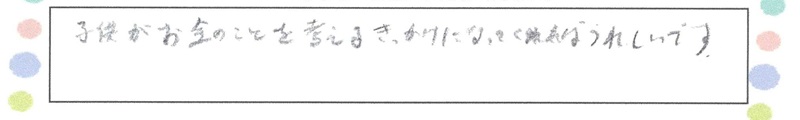 子供がお金のことを考えるきっかけになってくればうれしいです